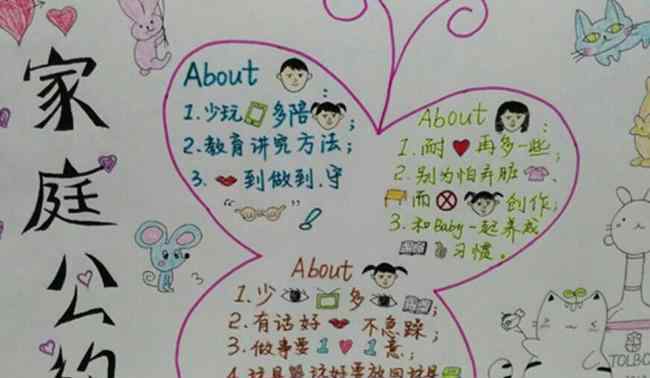 家庭公约
About :
1.少玩 多陪 ;
2.教育讲究方法;
3. 到做到.守
“ ” !
About :
1.耐 再多一些;
2.别为怕弄脏 、
而 创作;
3.和Baby一起养成
习惯。
3
About :
1.少 多 ;
2.有话好 不急躁;
3.做事要1 1意;
4.玩具 玩好要放回
TOLBO